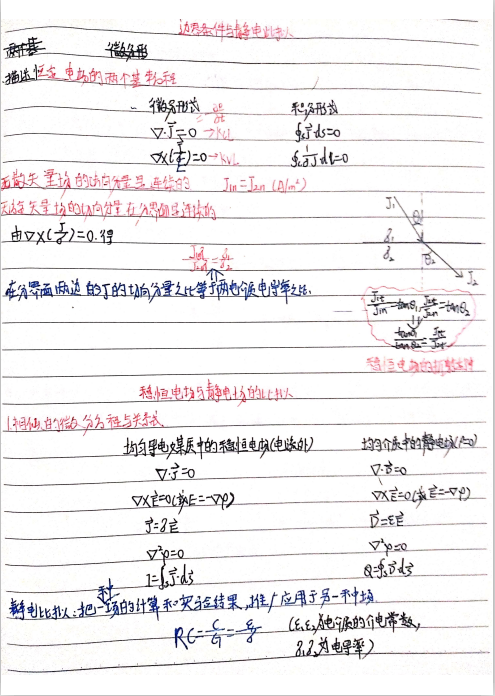 边界条件与静电比拟
微分形
描述恒定电场的两个基本方程
微分形式 积分形式
∇·J⃗=0 →KCL ∮ₛJ⃗ds=0
∇×(J⃗/σ)=0→KVL ∮c 1/σ J⃗dl=0
无散矢量场的法向分量是连续的 J₁ₙ=J₂ₙ (A/m²)
无旋矢量场的切向分量在分界面是连续的
由∇×(J/σ)=0.得
J₁t/J₂t=σ₁/σ₂
在分界面两边的J的切向分量之比等于两电介质电导率之比.
J₁
θ₁
σ₁
σ₂
θ₂
J₂
J₁t/J₁n=tanθ₁, J₂t/J₂n=tanθ₂
tanθ₁/tanθ₂=J₁t/J₂t
稳恒电场与静电场的比拟
1.相似的微分方程与关系式
均匀导电媒质中的稳恒电场(电源外) 均匀介质中的静电场(ρ=0)
∇·J⃗=0 ∇·D⃗=0
∇×E⃗=0(或E=-∇φ) ∇×E⃗=0(或E⃗=-∇φ)
J⃗=σE⃗ D⃗=εE⃗
∇²φ=0 ∇²φ=0
I=∮ₛJ⃗·ds⃗ Q=∮ₛD⃗·ds⃗
静电比拟:把一种场的计算和实验结果,推广应用于另一种场
RC=C/G=ε/σ (ε₁ε₂为电介质的介电常数,
σ₁σ₂为电导率)